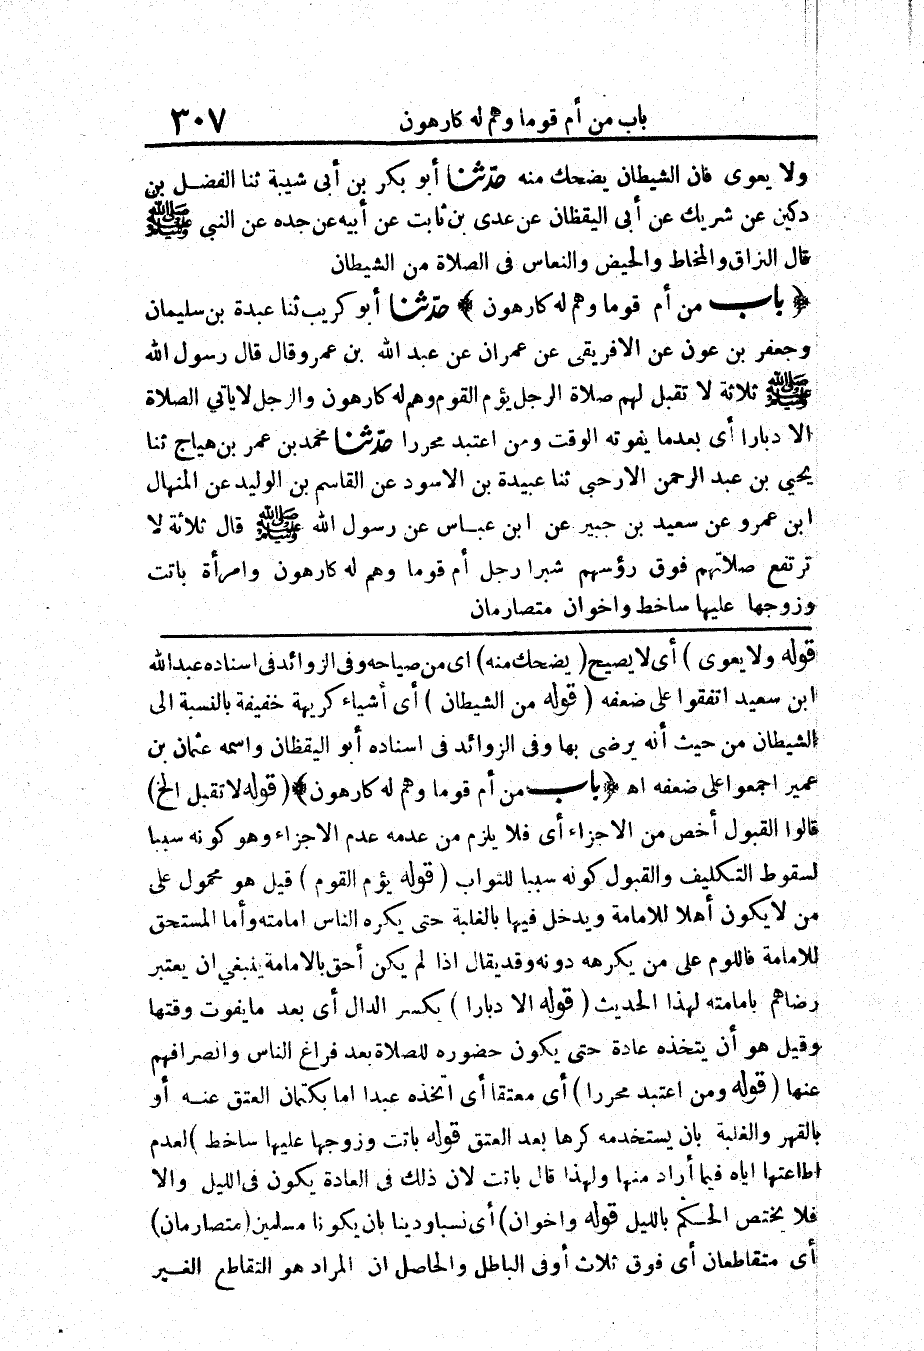 باب من أم قوما وهم له كارهون ٣٠٧
ولا يعوى فان الشيطان يضحك منه حدثنا أبو بكر بن أبى شيبة ثنا الفضل بن
دكين عن شريك عن أبى اليقظان عن عدى بن ثابت عن أبيه عن جده عن النبى ﷺ
قال البزاق والمخاط والحيض والنعاس فى الصلاة من الشيطان
﴿ باب من أم قوما وهم له كارهون ﴾ حدثنا أبو كريب ثنا عبدة بن سليمان
وجعفر بن عون عن الافريقى عن عمران عن عبد الله بن عمرو قال قال رسول الله
ﷺ ثلاثة لا تقبل لهم صلاة الرجل يؤم القوم وهم له كارهون والرجل لا ياتي الصلاة
الا دبارا أى بعدما يفوته الوقت ومن اعتبد محررا حدثنا محمد بن عمر بن هياج ثنا
يحيي بن عبد الرحمن الارحبى ثنا عبيدة بن الاسود عن القاسم بن الوليد عن المنهال
ابن عمرو عن سعيد بن جبير عن ابن عباس عن رسول الله ﷺ قال ثلاثة لا
ترتفع صلاتهم فوق رؤسهم شبرا رجل أم قوما وهم له كارهون وامرأة باتت
وزوجها عليها ساخط واخوان متصارمان
قوله ولا يعوى ) أى لا يصيح ( يضحك منه ) اى من صياحه وفى الزوائد فى اسناده عبد الله
ابن سعيد اتفقوا على ضعفه ( قوله من الشيطان ) أى أشياء كريهة خفيفة بالنسبة الى
الشيطان من حيث أنه يرضى بها وفى الزوائد فى اسناده أبو اليقظان واسمه عثمان بن
عمير اجمعوا على ضعفه اه ﴿ باب من أم قوما وهم له كارهون ﴾ ( قوله لا تقبل الخ )
قالوا القبول أخص من الاجزاء أى فلا يلزم من عدمه عدم الاجزاء وهو كونه سببا
لسقوط التكليف والقبول كونه سببا للثواب ( قوله يؤم القوم ) قيل هو محمول على
من لا يكون أهلا للامامة ويدخل فيها بالغلبة حتى يكره الناس امامته وأما المستحق
للامامة فاللوم على من يكرهه دونه وقد يقال اذا لم يكن أحق بالامامة ينبغي ان يعتبر
رضاهم بامامته لهذا الحديث ( قوله الا دبارا ) بكسر الدال أى بعد مايفوت وقتها
وقيل هو أن يتخذه عادة حتى يكون حضوره للصلاة بعد فراغ الناس وانصرافهم
عنها ( قوله ومن اعتبد محررا ) أى معتقا أى اتخذه عبدا اما بكتمان العتق عنه أو
بالقهر والغلبة بان يستخدمه كرها بعد العتق قوله باتت وزوجها عليها ساخط ) لعدم
اطاعتها اياه فيما أراد منها ولهذا قال باتت لان ذلك فى العادة يكون فى الليل والا
فلا يختص الحكم بالليل قوله واخوان ) أى نسبا ودينا بان يكونا مسلمين ( متصارمان )
أى متقاطعان أى فوق ثلاث أوفى الباطل والحاصل ان المراد هو التقاطع الغير